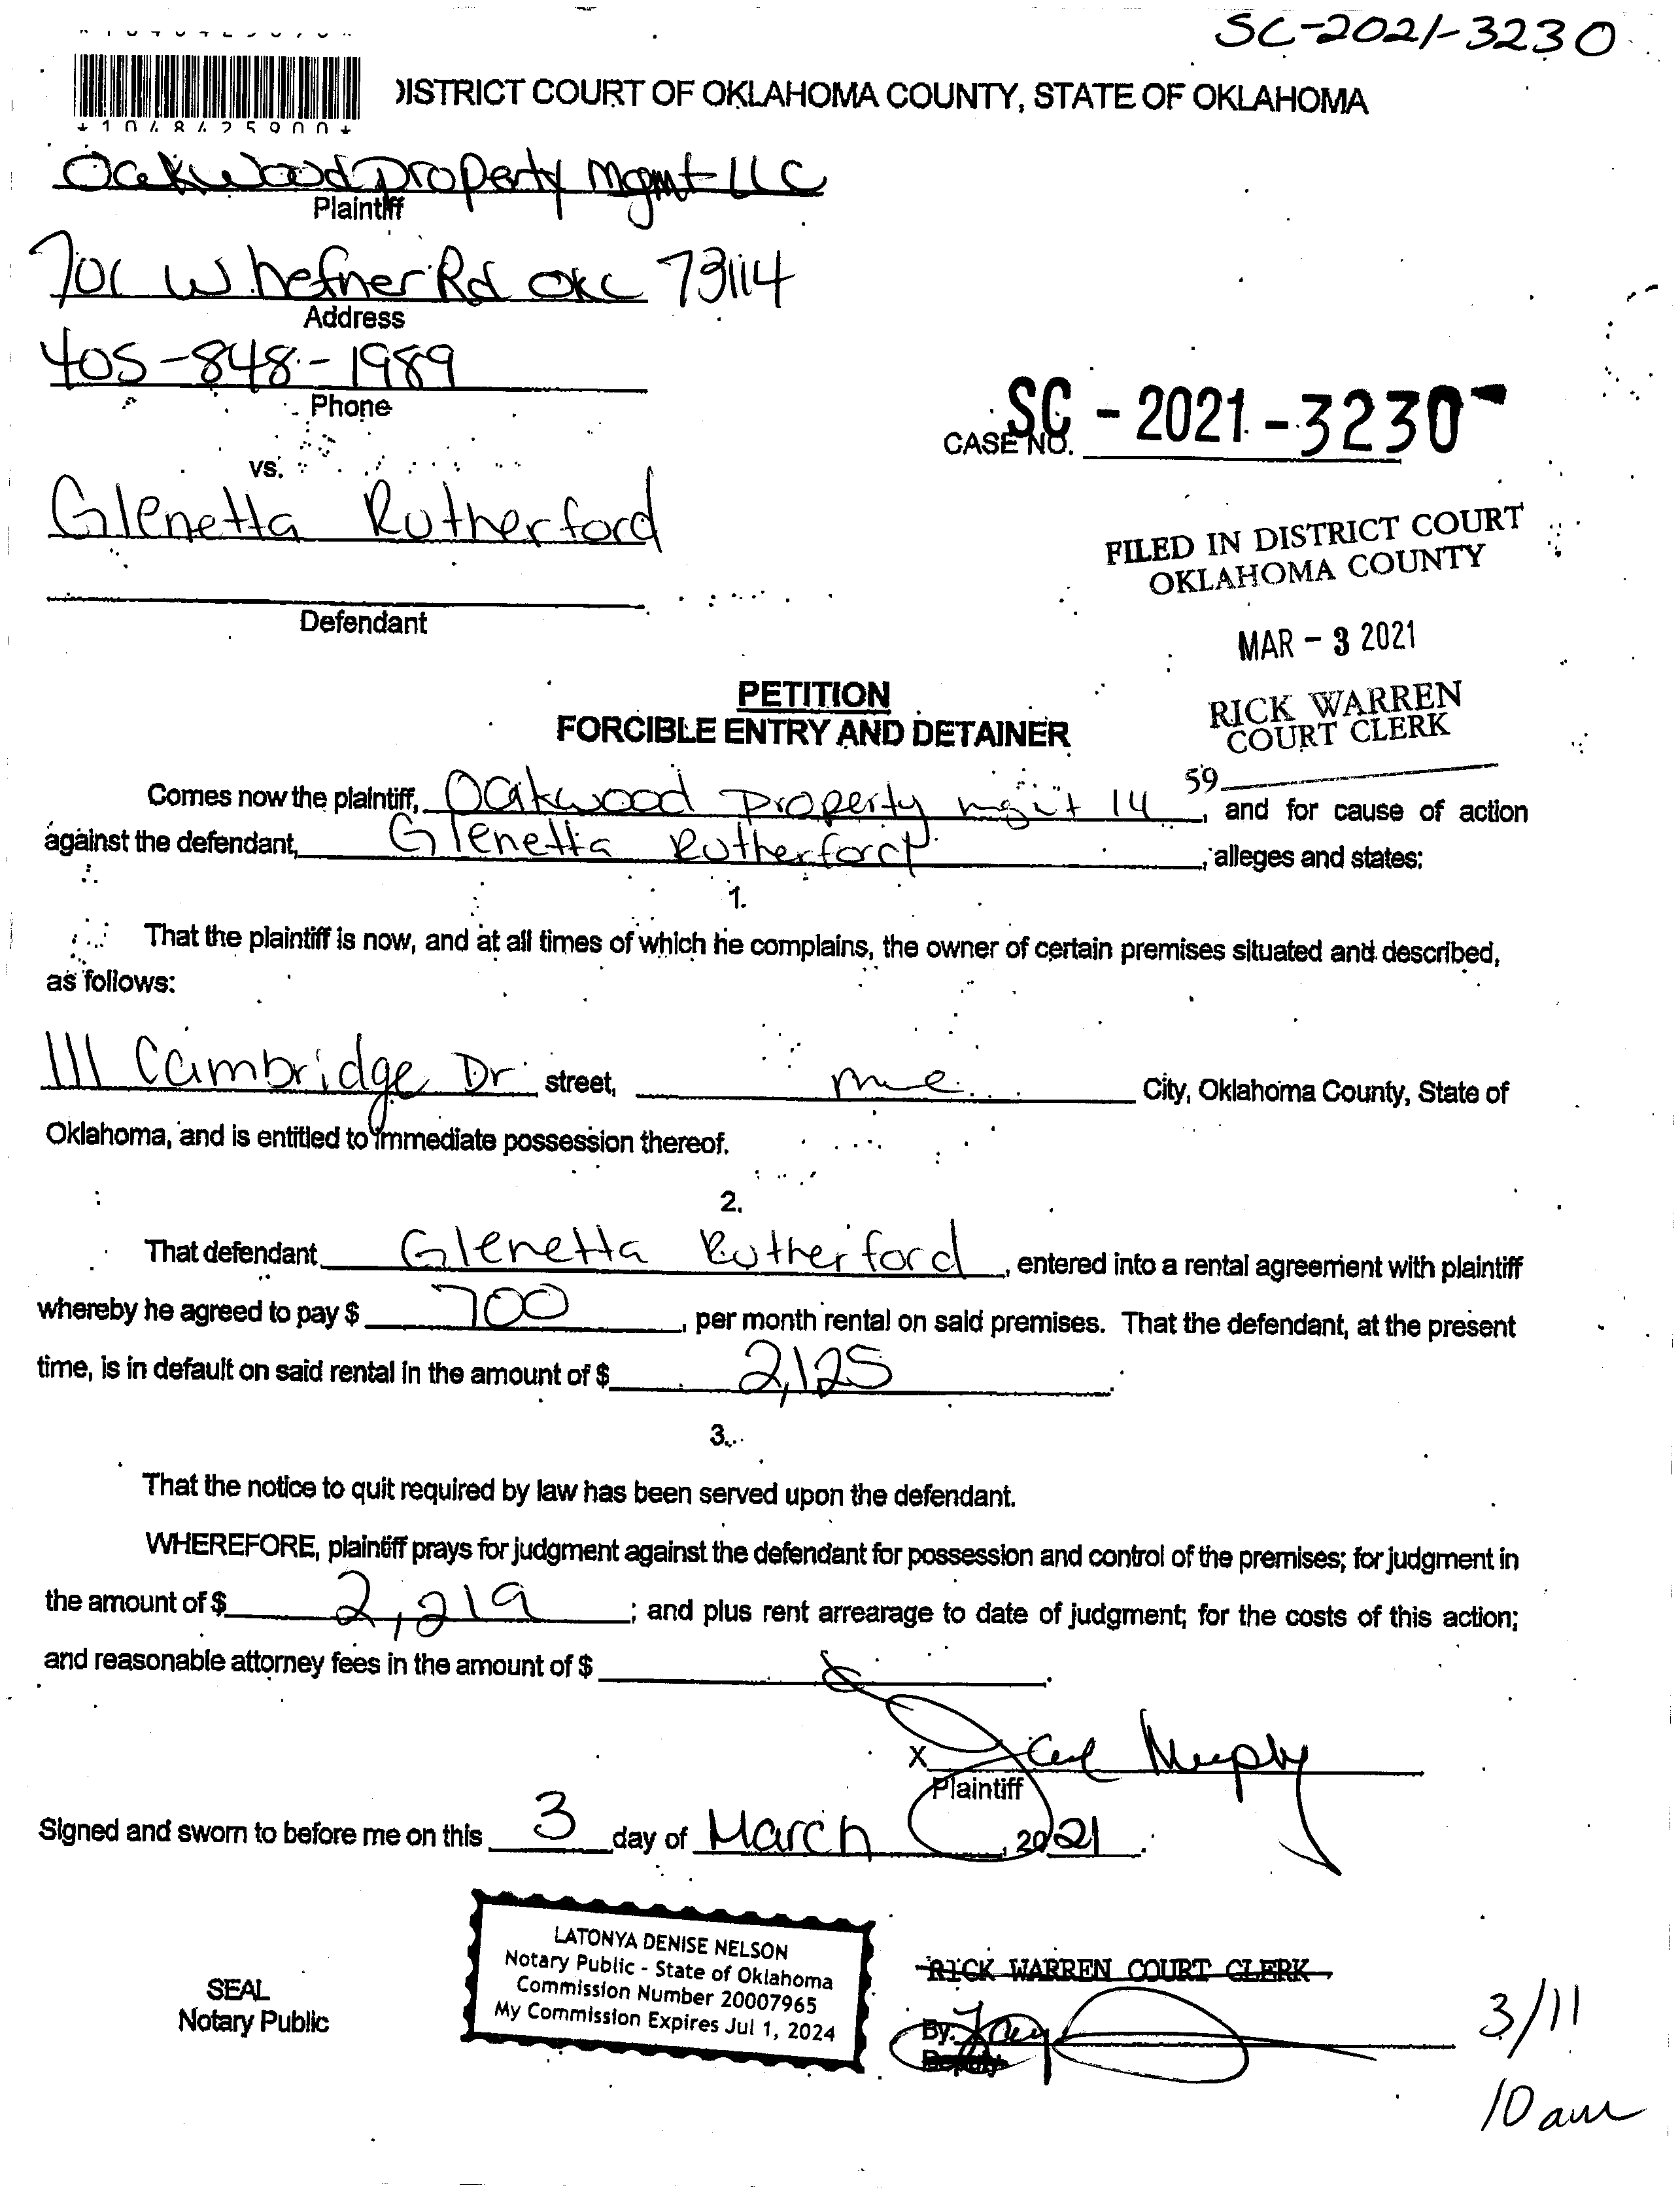 SC-2021-3230
DISTRICT COURT OF OKLAHOMA COUNTY, STATE OF OKLAHOMA
*1048425900*
Oakwood Property Mgmt LLC
Plaintiff
701 W hefner Rd OKC 73114
Address
405-848-1989
Phone
SC - 2021 - 3230
CASE NO.
vs.
Glenetta Rutherford
FILED IN DISTRICT COURT
OKLAHOMA COUNTY
Defendant
MAR - 3 2021
PETITION
FORCIBLE ENTRY AND DETAINER
RICK WARREN
COURT CLERK
59
Comes now the plaintiff, Oakwood Property mgmt, and for cause of action
against the defendant, Glenetta Rutherford, alleges and states:
1.
That the plaintiff is now, and at all times of which he complains, the owner of certain premises situated and described,
as follows:
111 Cambridge Dr street, City, Oklahoma County, State of
Oklahoma, and is entitled to immediate possession thereof.
2.
That defendant Glenetta Rutherford, entered into a rental agreement with plaintiff
whereby he agreed to pay $ 700, per month rental on said premises. That the defendant, at the present
time, is in default on said rental in the amount of $ 2,125.
3.
That the notice to quit required by law has been served upon the defendant.
WHEREFORE, plaintiff prays for judgment against the defendant for possession and control of the premises; for judgment in
the amount of $ 2,219; and plus rent arrearage to date of judgment; for the costs of this action;
and reasonable attorney fees in the amount of $
X Murphy
Plaintiff
Signed and sworn to before me on this 3 day of March, 2021.
LATONYA DENISE NELSON
Notary Public - State of Oklahoma
Commission Number 20007965
My Commission Expires Jul 1, 2024
SEAL
Notary Public
RICK WARREN COURT CLERK
By:
Deputy
3/11
10 am